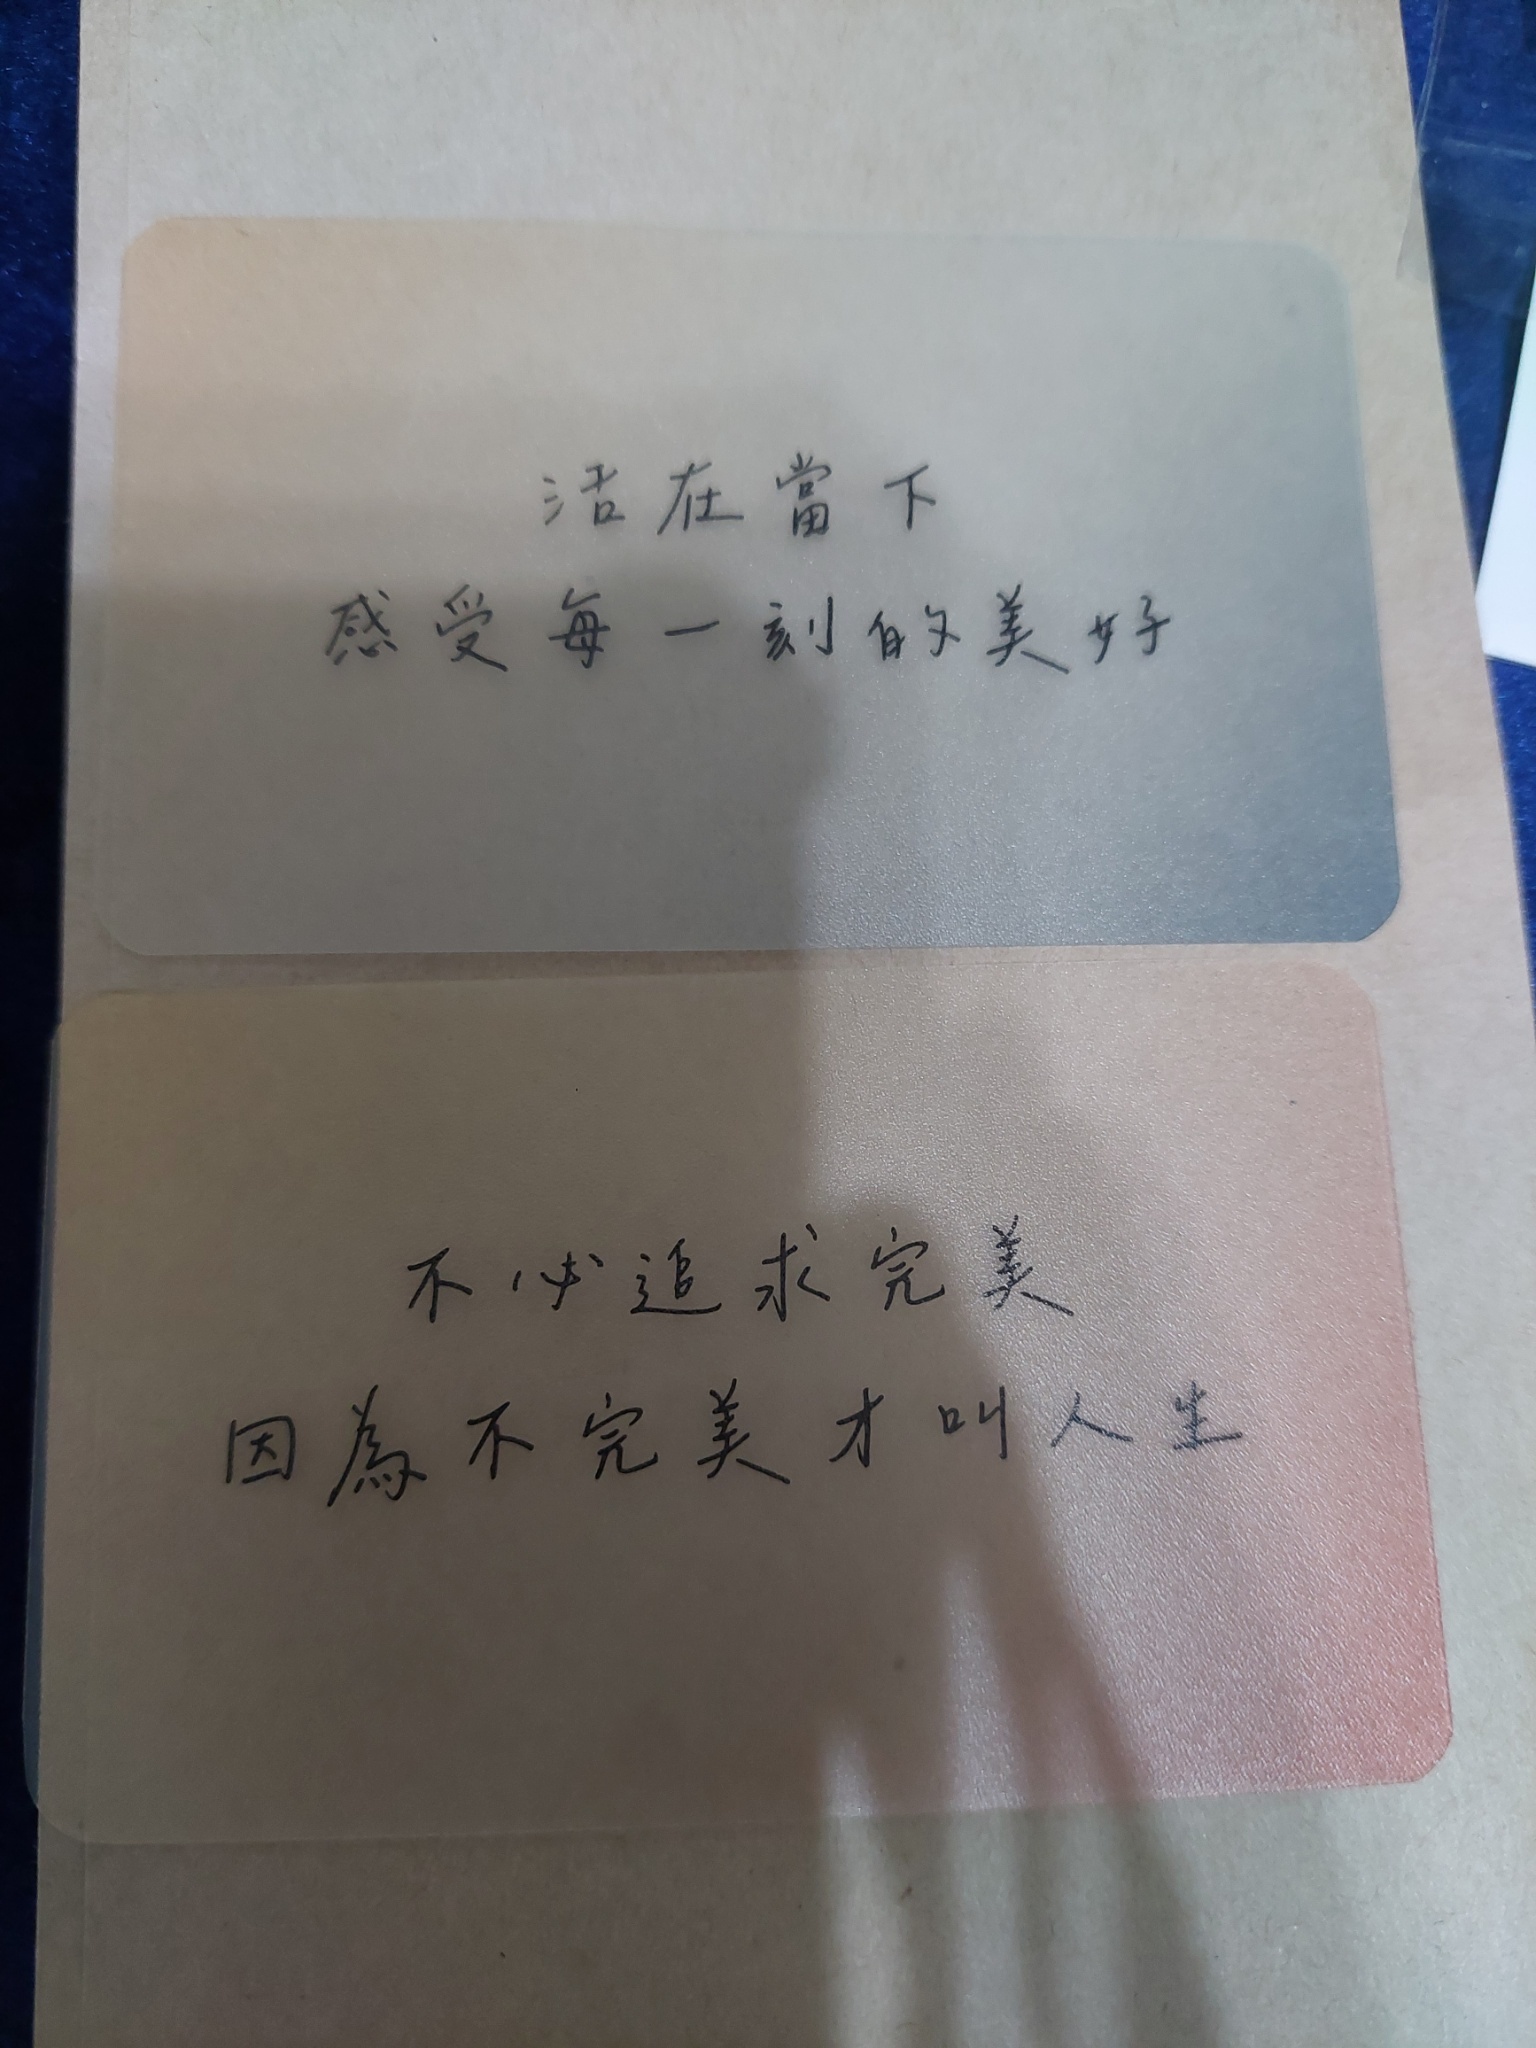 活在當下
感受每一刻的美好
不必追求完美
因為不完美才叫人生